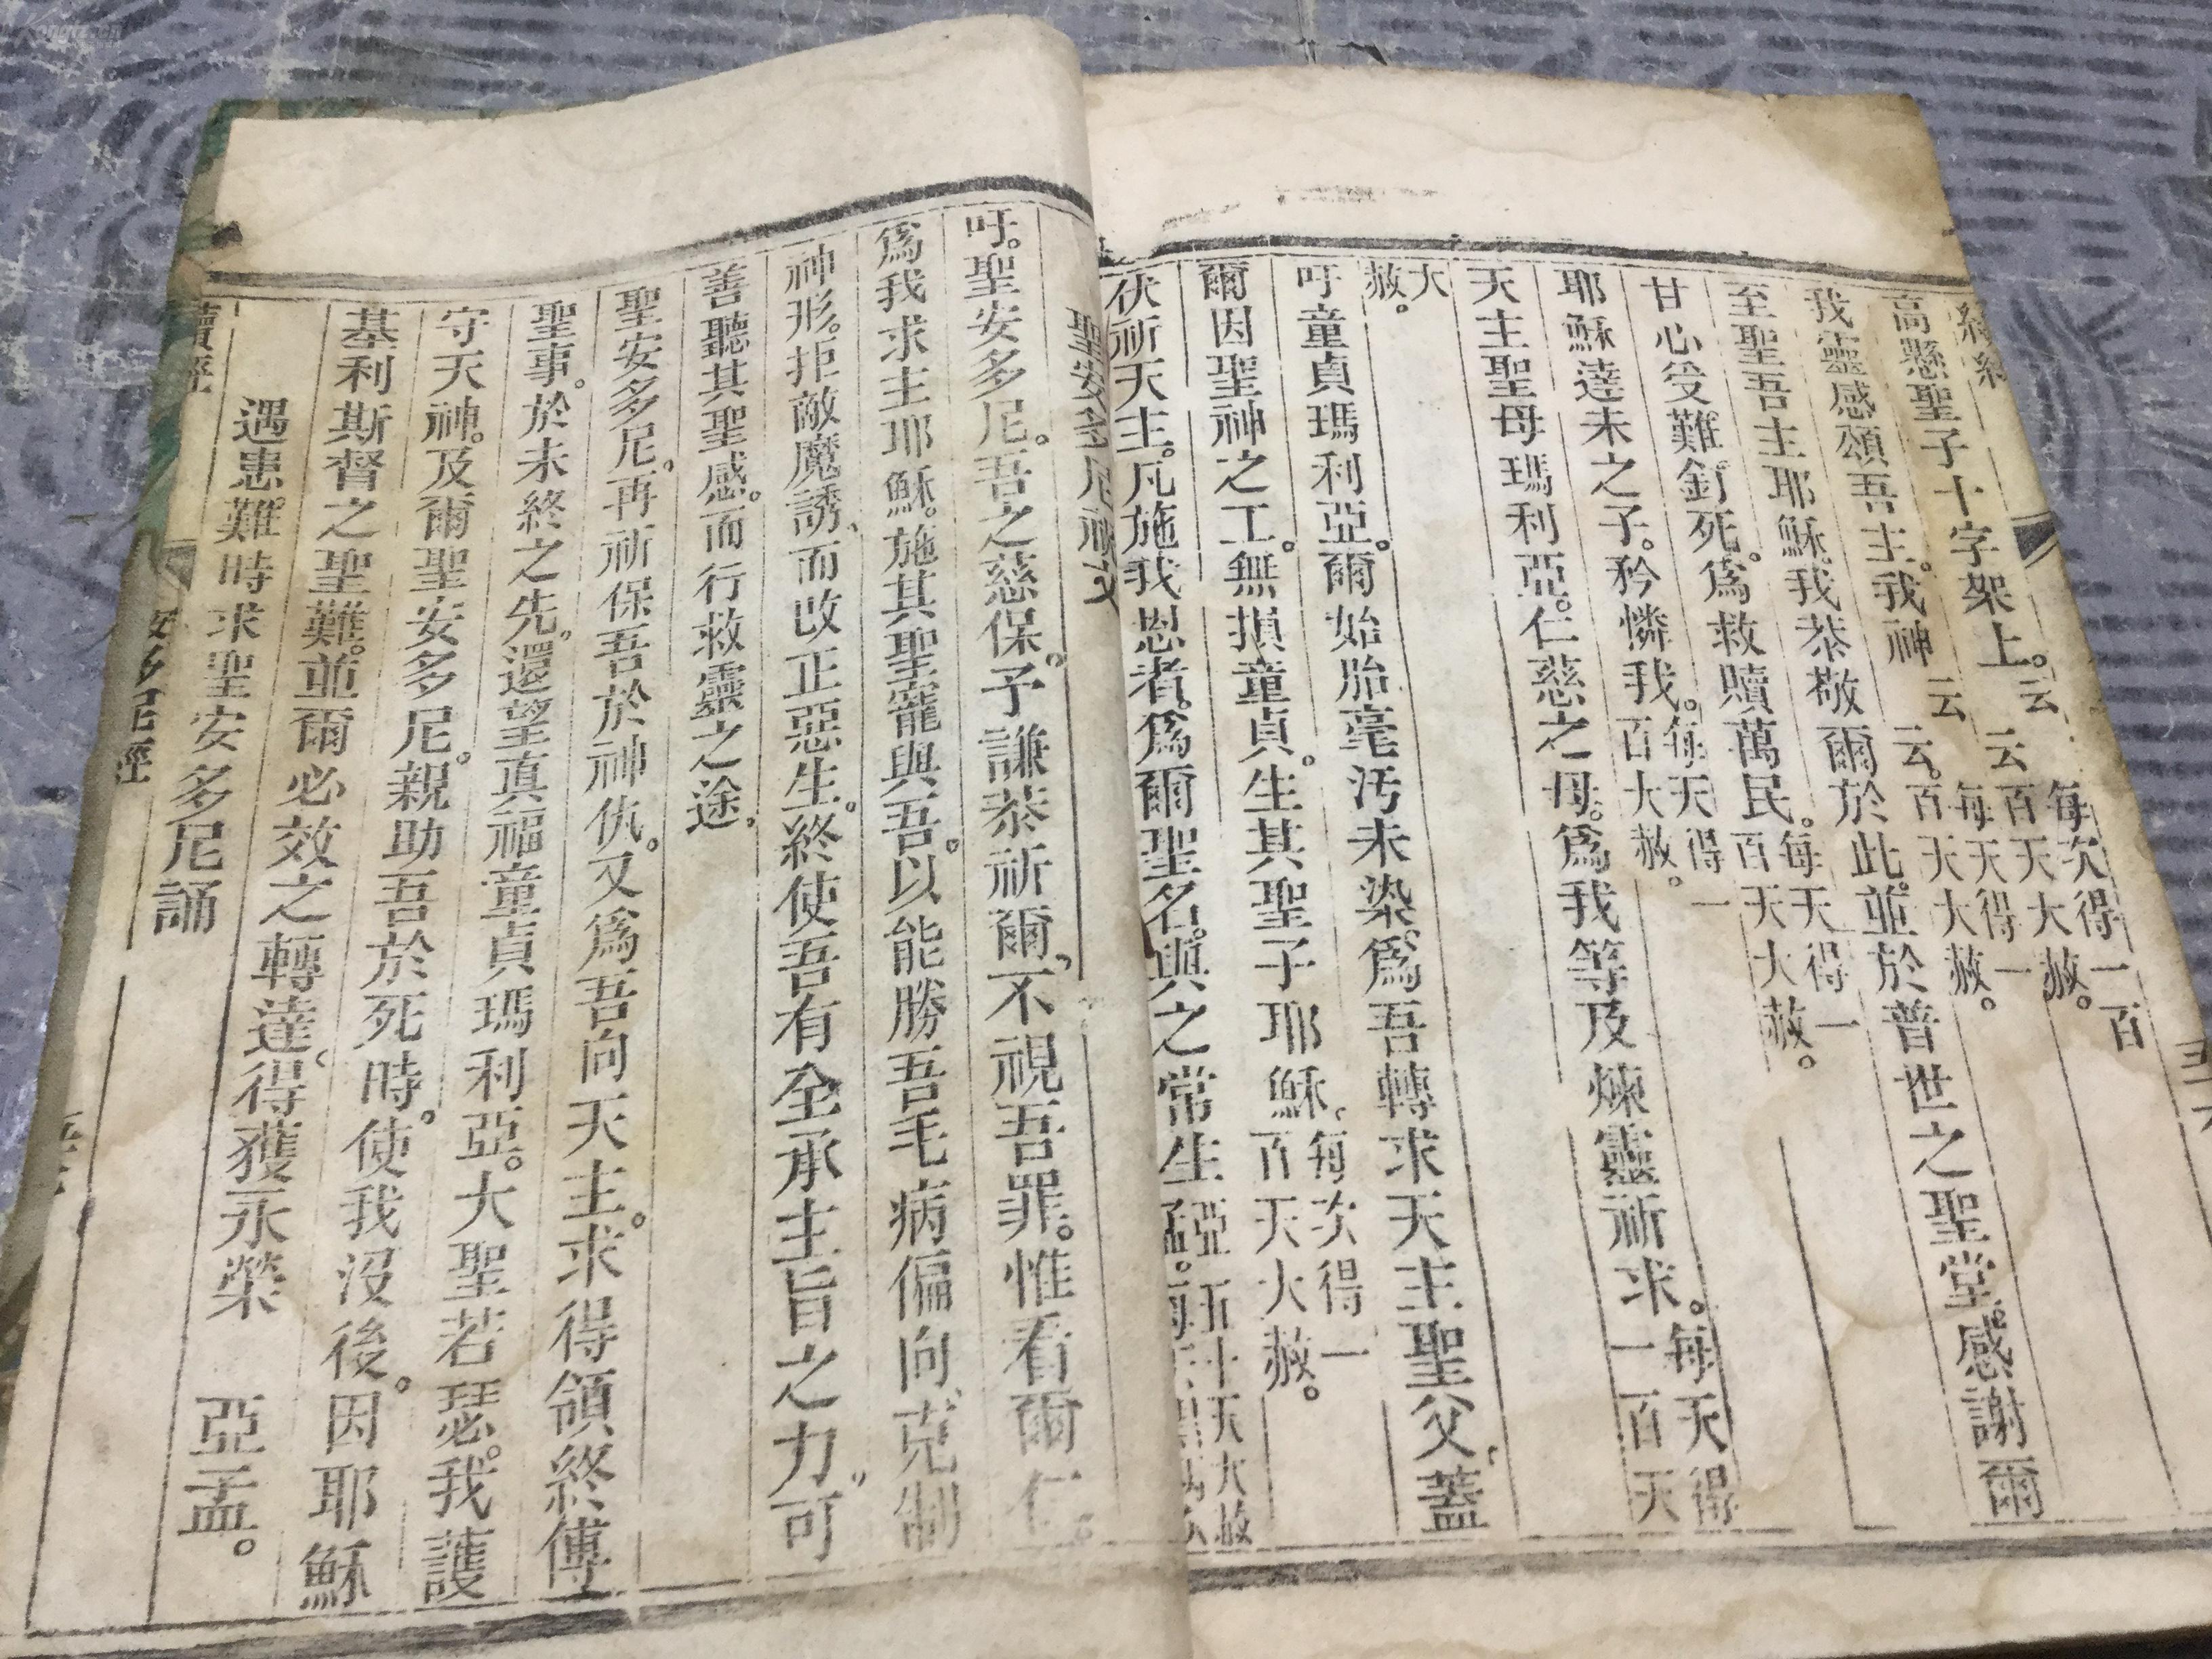 高懸聖子十字架上。云云百天大赦。每次得一百
我靈感頌吾主。我神云云。百天大赦。每天得一
至聖吾主耶穌、我恭敬爾於此。並於普世之聖堂。感謝爾
甘心受難釘死。爲救贖萬民。每天得一百天大赦。
耶穌達未之子。矜憐我。每天得一百大赦。
天主聖母瑪利亞。仁慈之母。爲我等及煉靈祈求。每天得一百天
大赦。
吁童貞瑪利亞。爾始胎毫汚未染。爲吾轉求天主聖父、蓋
爾因聖神之工。無損童貞。生其聖子耶穌。每次得一百天大赦。
伏祈天主。凡施我恩者。爲爾聖名。與之常生亞孟。五十天大赦
聖安多尼祝文
吁。聖安多尼。吾之慈保。予謙恭祈爾、不視吾罪。惟看爾仁。
爲我求主耶穌。施其聖寵與吾。以能勝吾毛病偏向、克制
神形。拒敵魔誘、而改正惡生。終使吾有全承主旨之力、可
善聽其聖感。而行救靈之途。
聖安多尼。再祈保吾於神仇。又爲吾向天主。求得領終傅
聖事。於未終之先。還望眞福童貞瑪利亞。大聖若瑟。我護
守天神。及爾聖安多尼。親助吾於死時。使我沒後。因耶穌
基利斯督之聖難。並爾必效之轉達、得獲永榮 亞孟。
遇患難時求聖安多尼誦
安多尼經